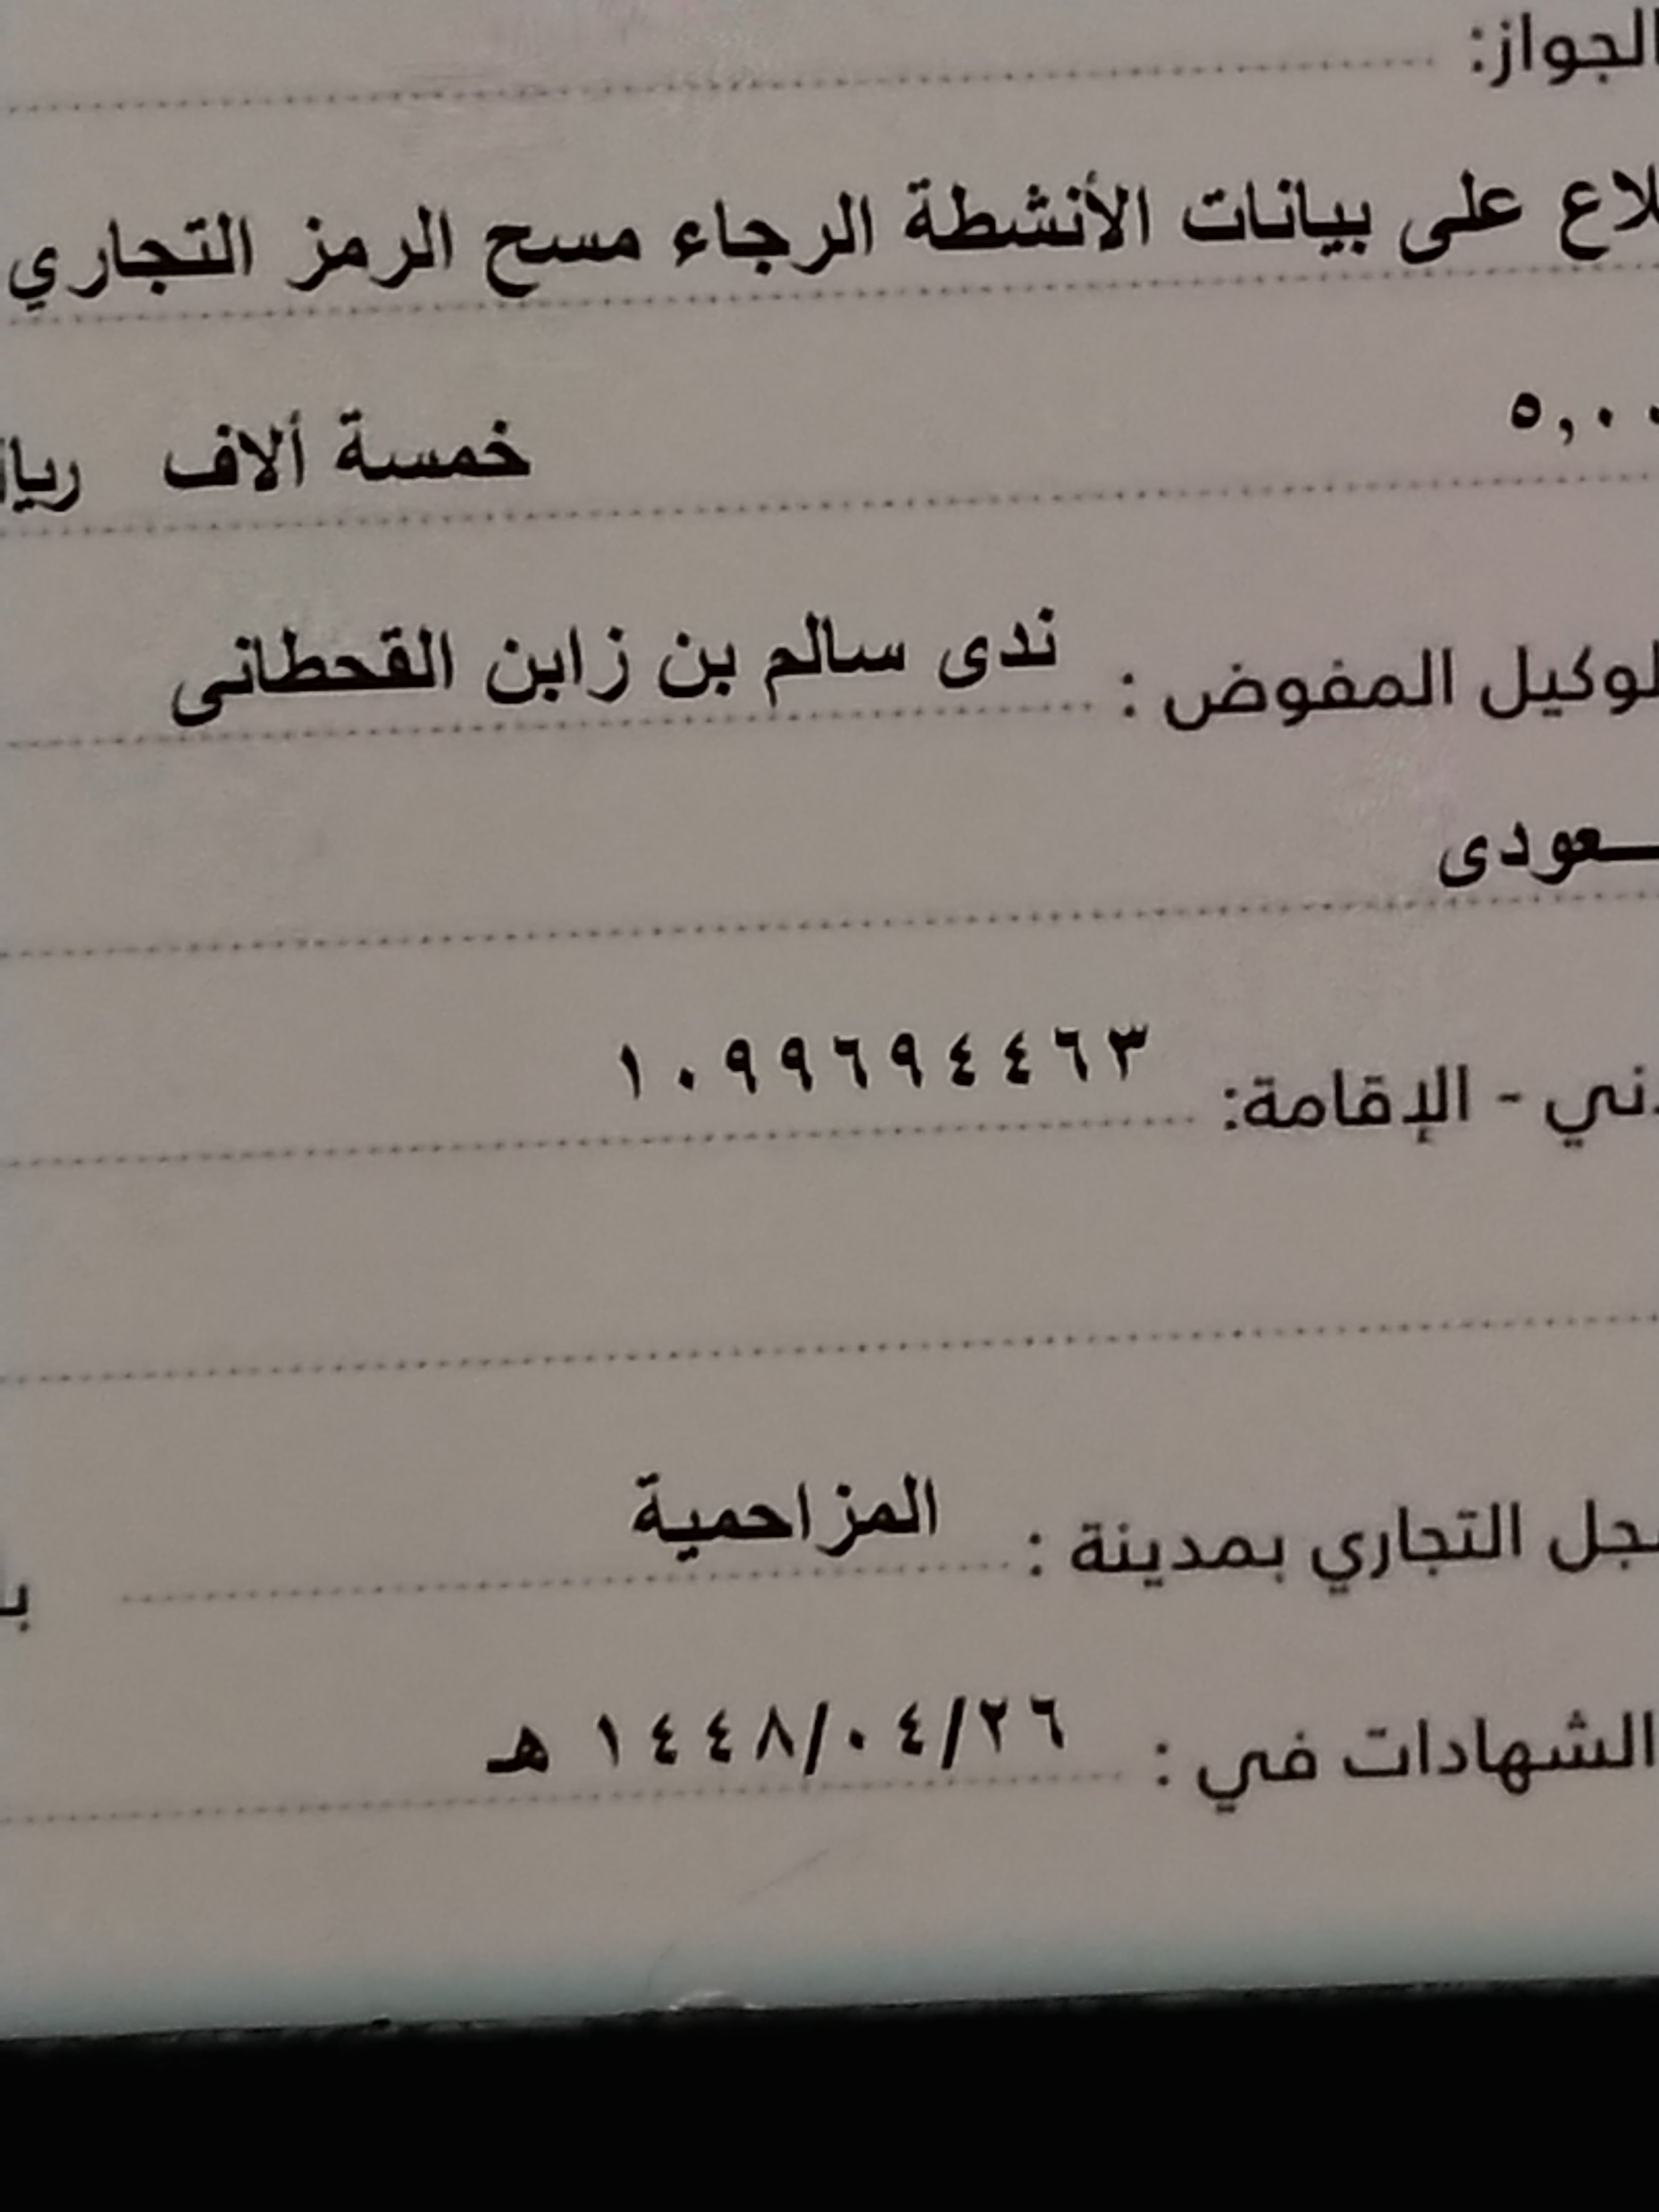 الجواز:
على بيانات الأنشطة الرجاء مسح الرمز التجاري
خمسة ألاف
المفوض : ندى سالم بن زابن القحطانى
الإقامة: ١٠٩٩٦٩٤٤٦٣
التجاري بمدينة : المزاحمية
الشهادات في : ١٤٤٨/٠٤/٢٦ هـ